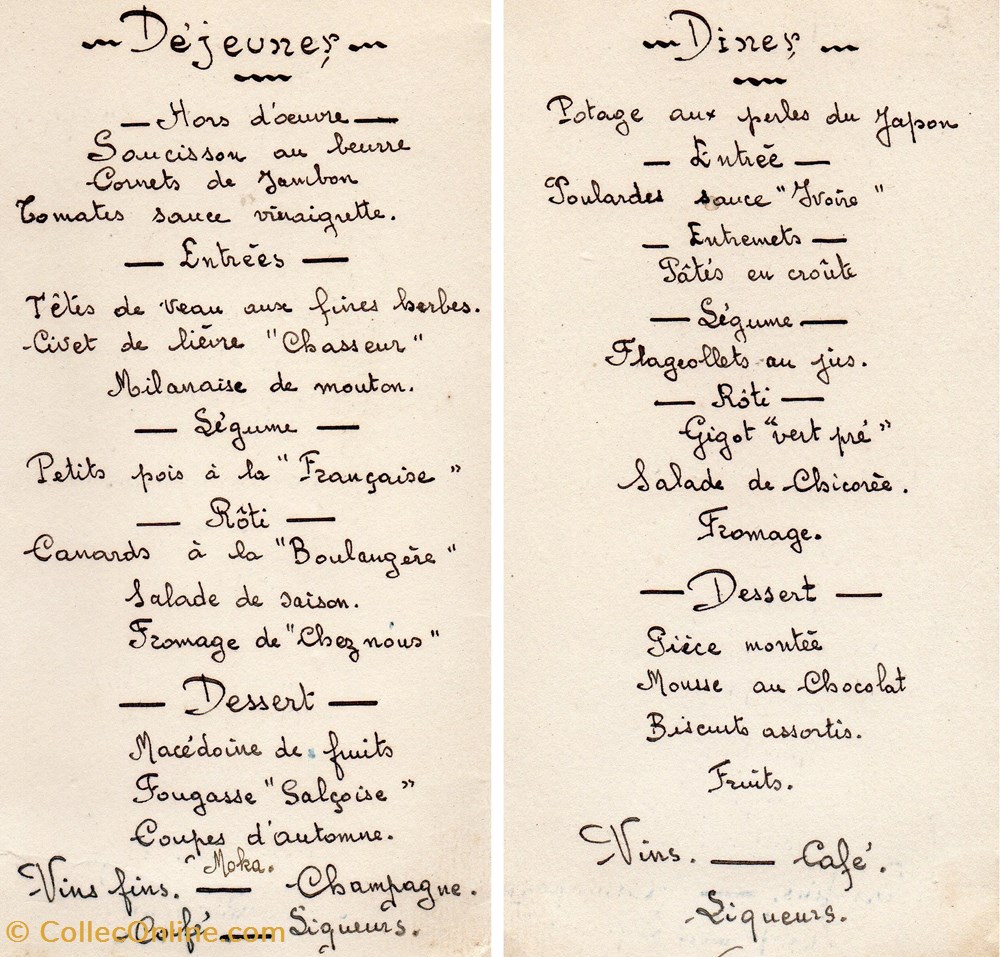 Déjeuner
Hors d'œuvre
Saucisson au beurre
Cornets de Jambon
Tomates sauce vinaigrette.
Entrées
Têtes de veau aux fines herbes.
Civet de lièvre "Chasseur"
Milanaise de mouton.
Légume
Petits pois à la "Française"
Rôti
Canards à la "Boulangère"
Salade de saison.
Fromage de "Chez nous"
Dessert
Macédoine de fruits
Fougasse "Salçoise"
Coupes d'automne.
Moka.
Vins fins. — Champagne.
Café — Liqueurs.
© CollecOnline.com
Diner
Potage aux perles du Japon
Entrée
Poulardes sauce "Ivoire"
Entremets
Pâtés en croûte
Légume
Flageollets au jus.
Rôti
Gigot "vert pré"
Salade de Chicorée.
Fromage.
Dessert
Pièce montée
Mousse au Chocolat
Biscuits assortis.
Fruits.
Vins. — Café.
Liqueurs.